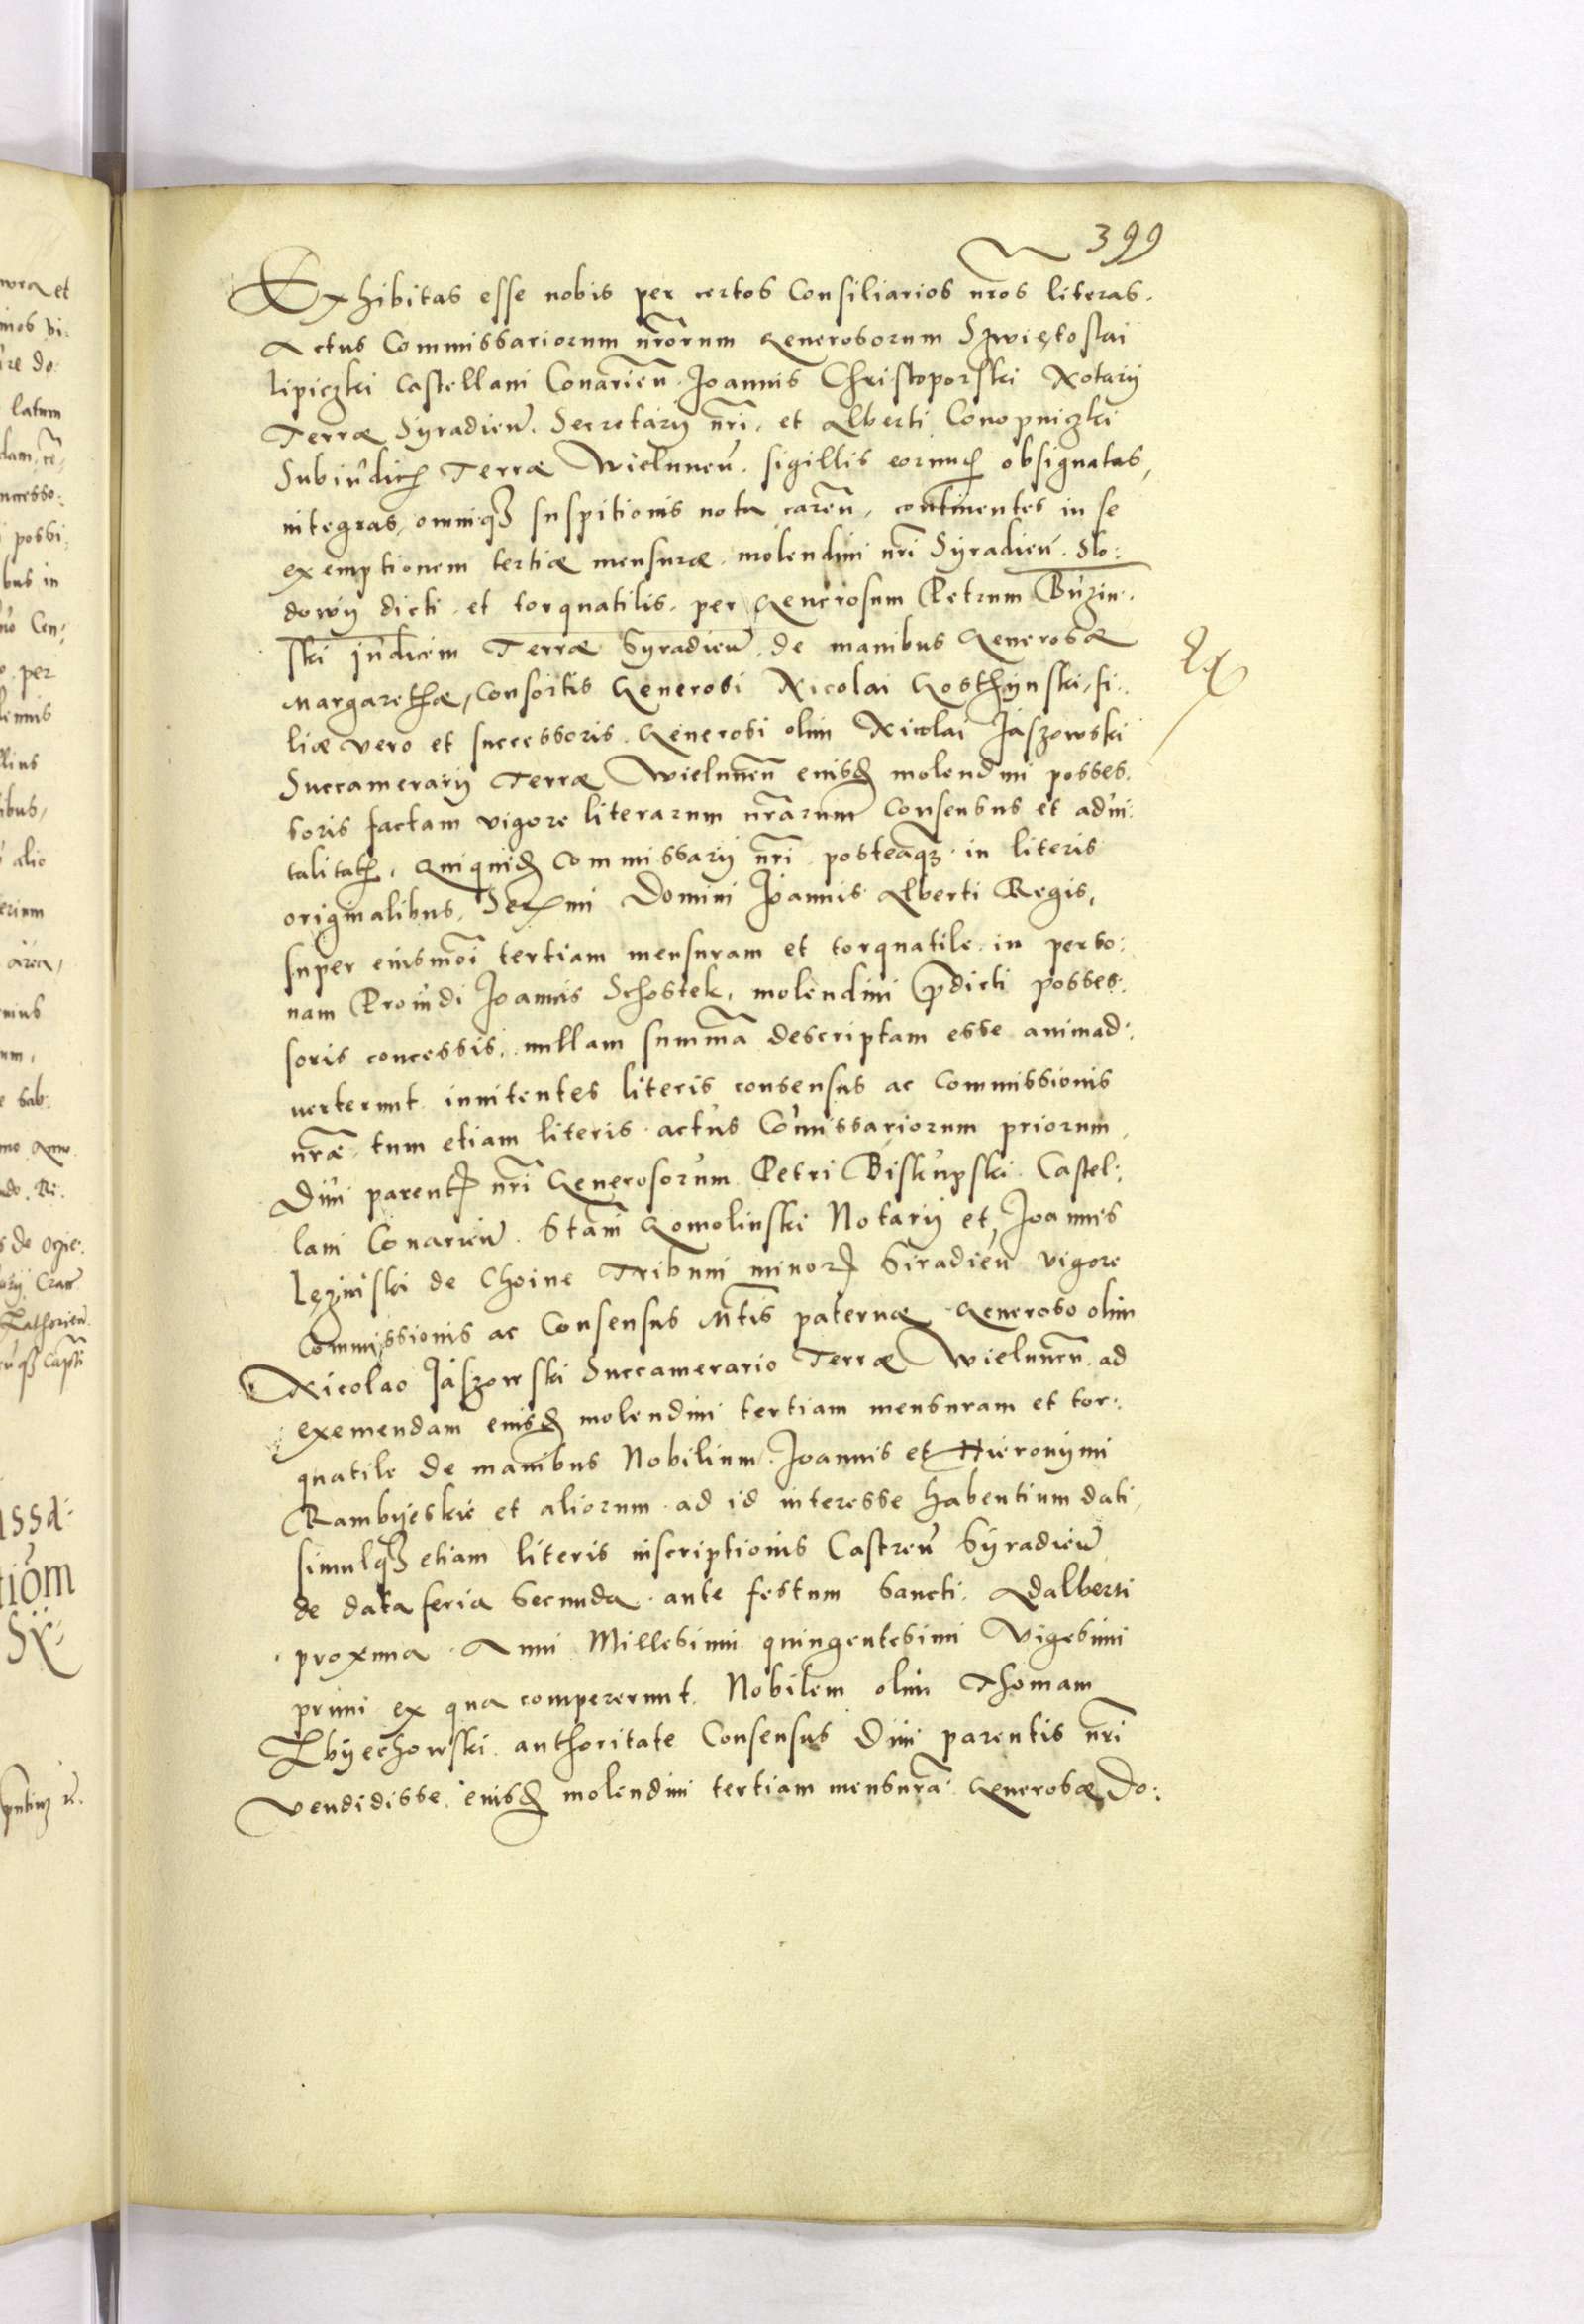 399
Exhibitas esse nobis per certos Consiliarios nr̃os literas.
Actus Commissariorum nr̃orum Generosorum Szwiętoslai
Lipiczki Castellani Conarien̄. Joannis Christoporski Notarij
Terræ Syradien̄. Secretarij nr̃i, et Alberti Conopniczki
Subiudicꝭ Terræ Wielunen̄. sigillis eorumdꝫ obsignatas,
integras, omniqꝫ suspitionis nota caren̄, continentes in se
exemptionem tertiæ mensuræ molendini nr̃i Syradien̄. Slo:
dowy dicti et torquatilis, per Generosum Petrum Buzin:
ski judicem Terræ Syradien̄. de manibus Generosæ
Margarethæ, Consortis Generosi Nicolai Gosthynski, fi:
liæ vero et successoris Generosi olim Nicolai Jaszowski
Succamerarij Terræ Wielunen̄ eiusdꝫ molendini posses:
soris factam vigore literarum nr̃arum Consensus et advi:
talitatꝭ. Quiquidꝫ Commissarij nr̃i posteaqꝫ in literis
originalibus, Serꝫmi Domini Joannis Alberti Regis,
super eiusmoi tertiam mensuram et torquatile in perso:
nam Providi Joannis Schostek, molendini p̄dicti posses:
soris concessis, nullam summā descriptam esse animad:
verterunt innitentes literis consensus ac Commissionis
nr̃æ tum etiam literis actus Com̄issariorum priorum,
Diui parentꝭ nr̃i Generosorum Petri Biskupski Castel:
lani Conarien̄. Stanī Gomolinski Notarij et Joannis
Lęziński de Choine Tribuni minorꝭ Siradien̄ vigore
Commissionis ac Consensus Mtis paternæ Generoso olim
Nicolao Jaszowski Succamerario Terræ Wielunen̄. ad
exemendam eiusdꝫ molendini tertiam mensuram et tor:
quatile de manibus Nobilium. Joannis et Hieronymi
Rambyeskie et aliorum ad id interesse habentium dati,
simulqꝫ etiam literis inscriptionis Castren̄ Syradien̄
de data feria Secunda ante festum Sancti Adalberti
proxima Anni Millesimi quingentesimi Vigesimi
primi ex qua compererunt Nobilem olim Thomam
Zbyechowski authoritate Consensus Diui parentis nr̃i
vendidisse eiusdꝫ molendini tertiam mensurā Generosæ Do: